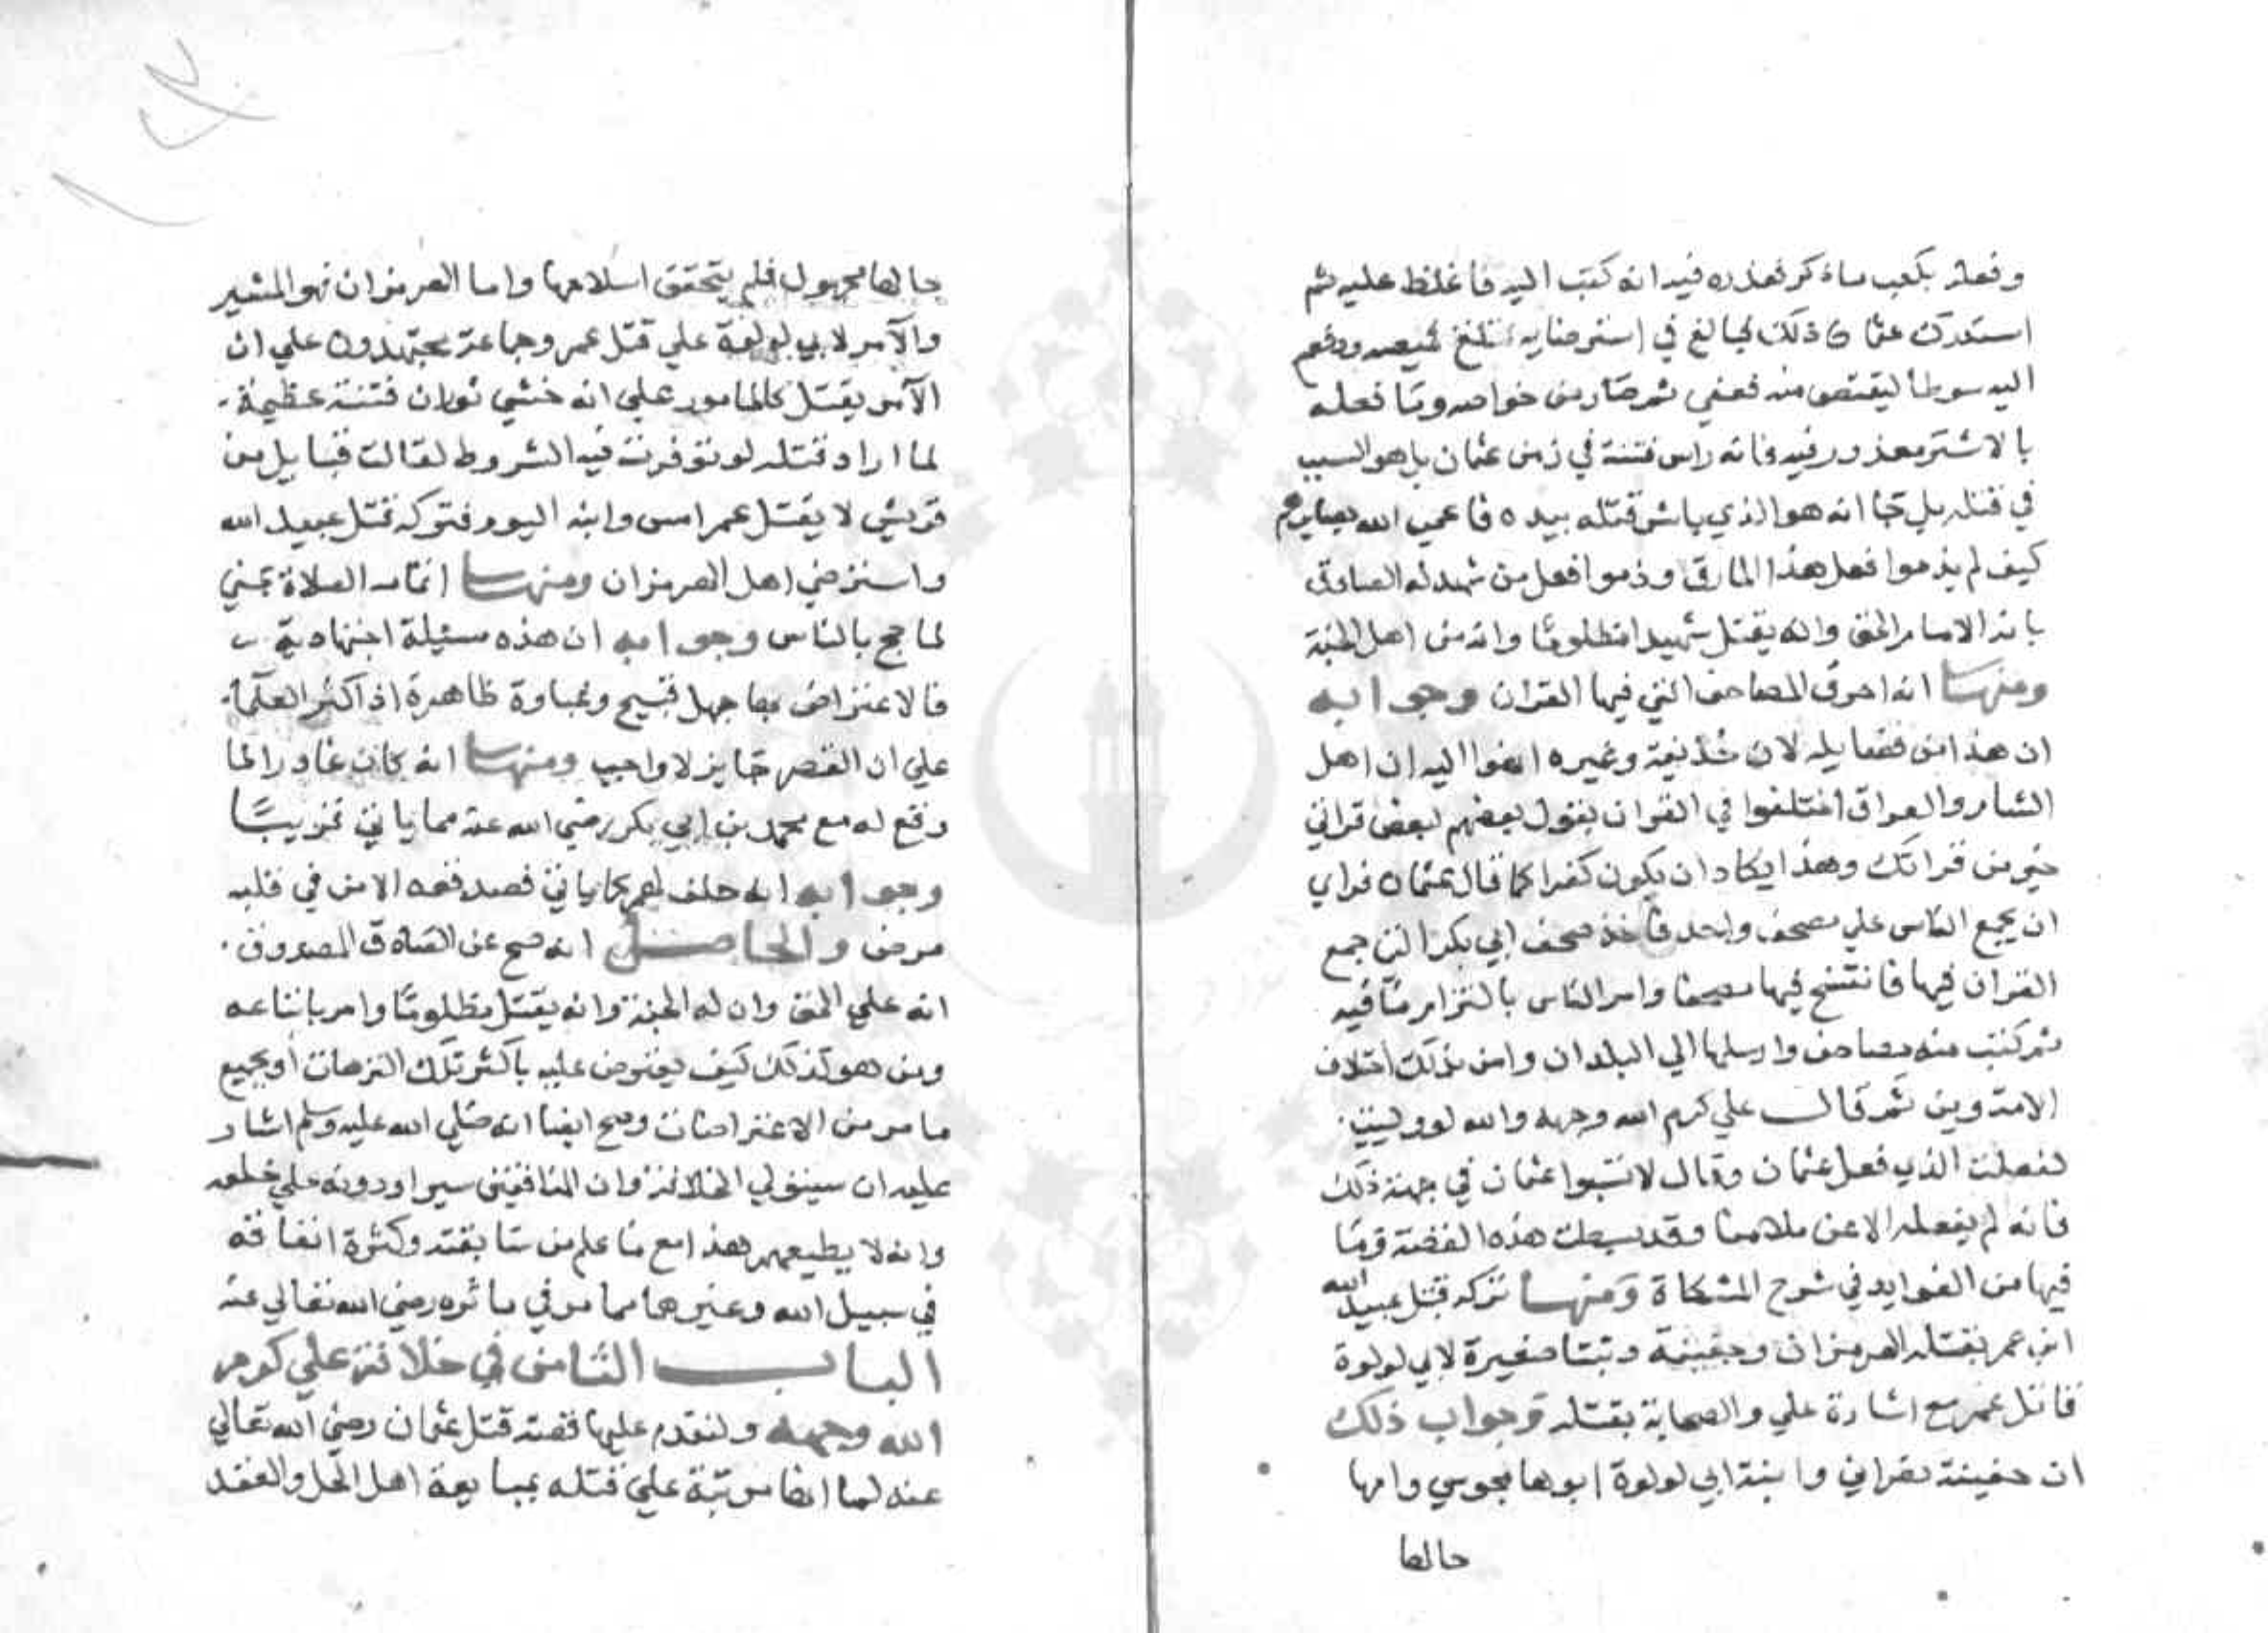 وفعله بكعب ما ذكر فعذره فيه انه كتب اليه فاغلظ عليه ثم
استدرك عثمان ذلك فبالغ في استرضايه فخلع قميصه ودفع
اليه سوطا ليقتص منه فعفي ثم صار من خواصه وما فعله
بالاشتر معذور فيه فانه راس فتنة في زمن عثمان بل هو السبب
في قتله بل جا انه هو الذي باشر قتله بيده فاعمى الله بصايرهم
كيف لم يذموا فعل هذا المارق وذموا فعل من شهد له الصادق
بانه الامام الحق وانه يقتل شهيدا مظلوما وانه من اهل الجنة
ومنها انه احرق المصاحف التي فيها القران وجوابه
ان هذا من فضايله لان حذيفة وغيره انهوا اليه ان اهل
الشام والعراق اختلفوا في القران يقول بعضهم لبعض قراني
خير من قرانك وهذا يكاد ان يكون كفرا كما قال عثمان فراي
ان يجمع الناس علي مصحف واحد فاخذ صحف ابي بكر التي جمع
القران فيها فانتسخ فيها مصحفا وامر الناس بالتزام ما فيه
ثم كتب منه مصاحف وارسلها الي البلدان وامن بذلك اختلاف
الامة ومن ثم قال علي كرم الله وجهه والله لو وليت
لفعلت الذي فعل عثمان وقال لا تسبوا عثمان في جهة ذلك
فانه لم يفعله الا عن ملا منا وقد بسطت هذه القصة وما
فيها من الفوايد في شرح المشكاة ومنها تركه قتل عبيد الله
ابن عمر بقتله الهرمزان وجفينة وبنتا صغيرة لابي لولوة
قاتل عمر مع اشارة علي والصحابة بقتله وجواب ذلك
ان جفينة نصراني وابنة ابي لولوة ابوها مجوسي وامها
حالها
حالها مجهول فلم يتحقق اسلامها واما الهرمزان فهو المشير
والآمر لابي لولوة علي قتل عمر وجماعة مجتهدون علي ان
الآمر يقتل كالمامور علي انه خشي ثوران فتنة عظيمة
لما اراد قتله لو توفرت فيه الشروط لقالت قبايل من
قريش لا يقتل عمر امس وابنه اليوم فترك قتل عبيد الله
واسترضي اهل الهرمزان ومنها اتمامه الصلاة بمني
لما حج بالناس وجوابه ان هذه مسئلة اجتهادية
فالاعتراض بها جهل قبيح وغباوة ظاهرة اذ اكثر العلما
علي ان القصر جايز لا واجب ومنها انه كان غادرا لما
وقع له مع محمد بن ابي بكر رضي الله عنه مما ياتي قريبا
وجوابه انه حلف لهم كما ياتي فصدقوه الا من في قلبه
مرض والحاصل انه صح عن الصادق المصدوق
انه علي الحق وان له الجنة وانه يقتل مظلوما وامر باتباعه
ومن هو كذلك كيف يعترض عليه باكثر تلك الترهات او بجميع
ما مر من الاعتراضات وصح ايضا انه صلي الله عليه وسلم اشار
عليه ان سيتولي الخلافة وان المنافقين سيراودونه علي خلعه
وانه لا يطيعهم هذا مع ما علم من سابقته وكثرة انفاقه
في سبيل الله وغيرهما مما مر في ماثره رضي الله تعالي عنه
الباب الثامن في خلافة علي كرم
الله وجهه ولنقدم عليها قصة قتل عثمان رضي الله تعالي
عنه لما انها مرتبة علي قتله بمبايعة اهل الحل والعقد